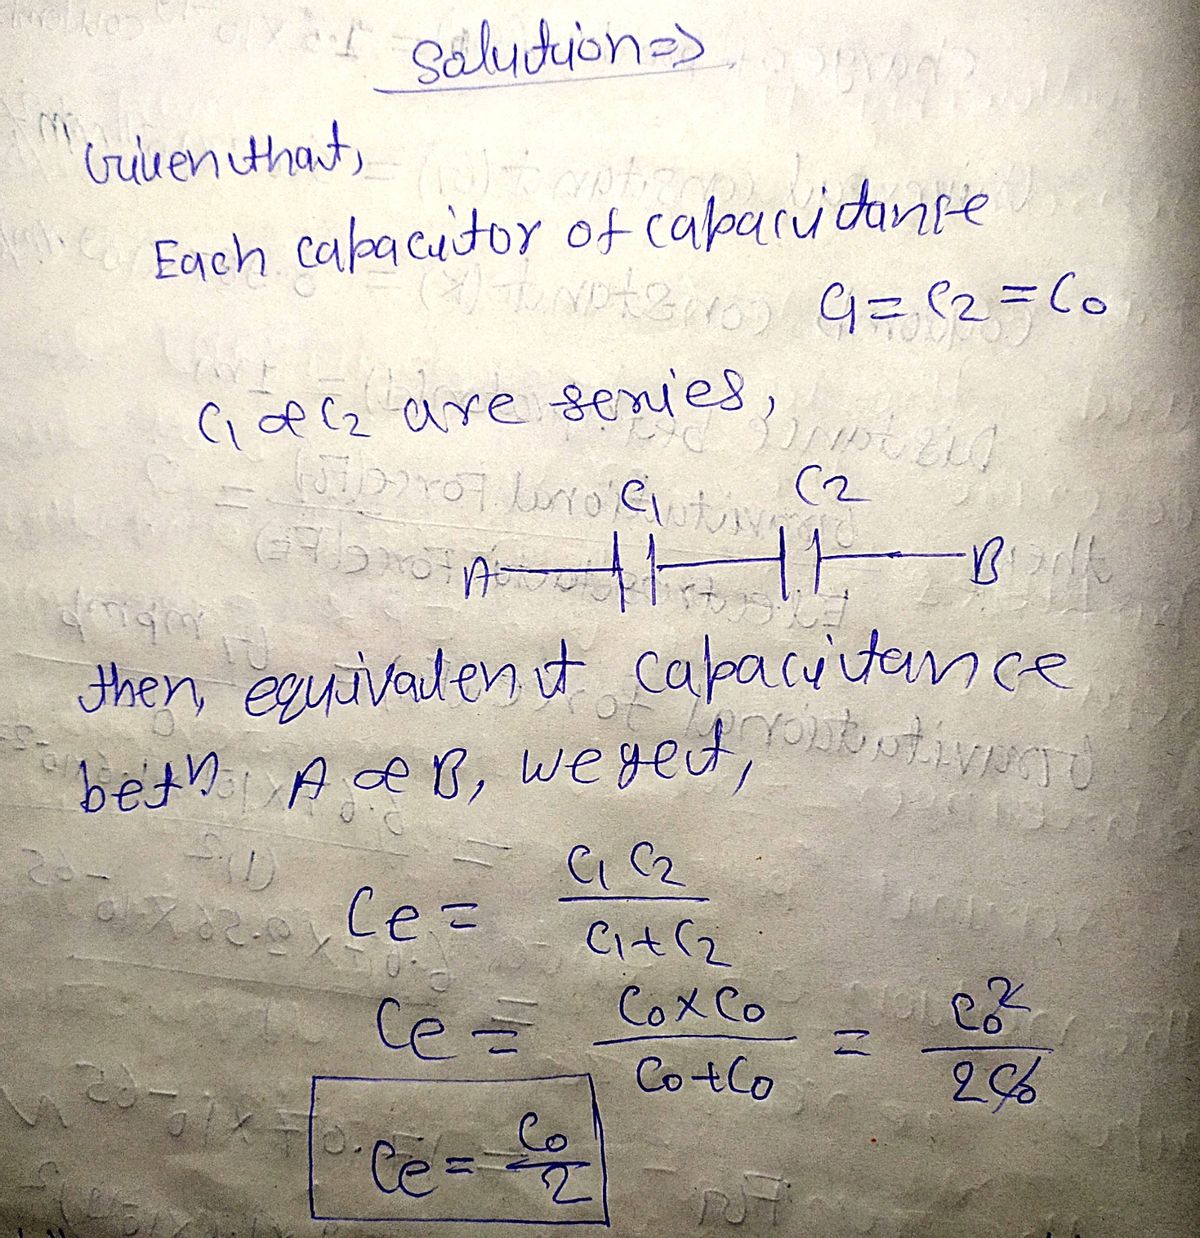 Solution =>
Given that,
Each capacitor of capacitance
C1 = C2 = C0
C1 & C2 are series,
C1 C2
A B
then, equivalent capacitance
betn A & B, we get,
Ce = C1 C2 / C1 + C2
Ce = C0 x C0 / C0 + C0 = C0² / 2C0
Ce = C0 / 2